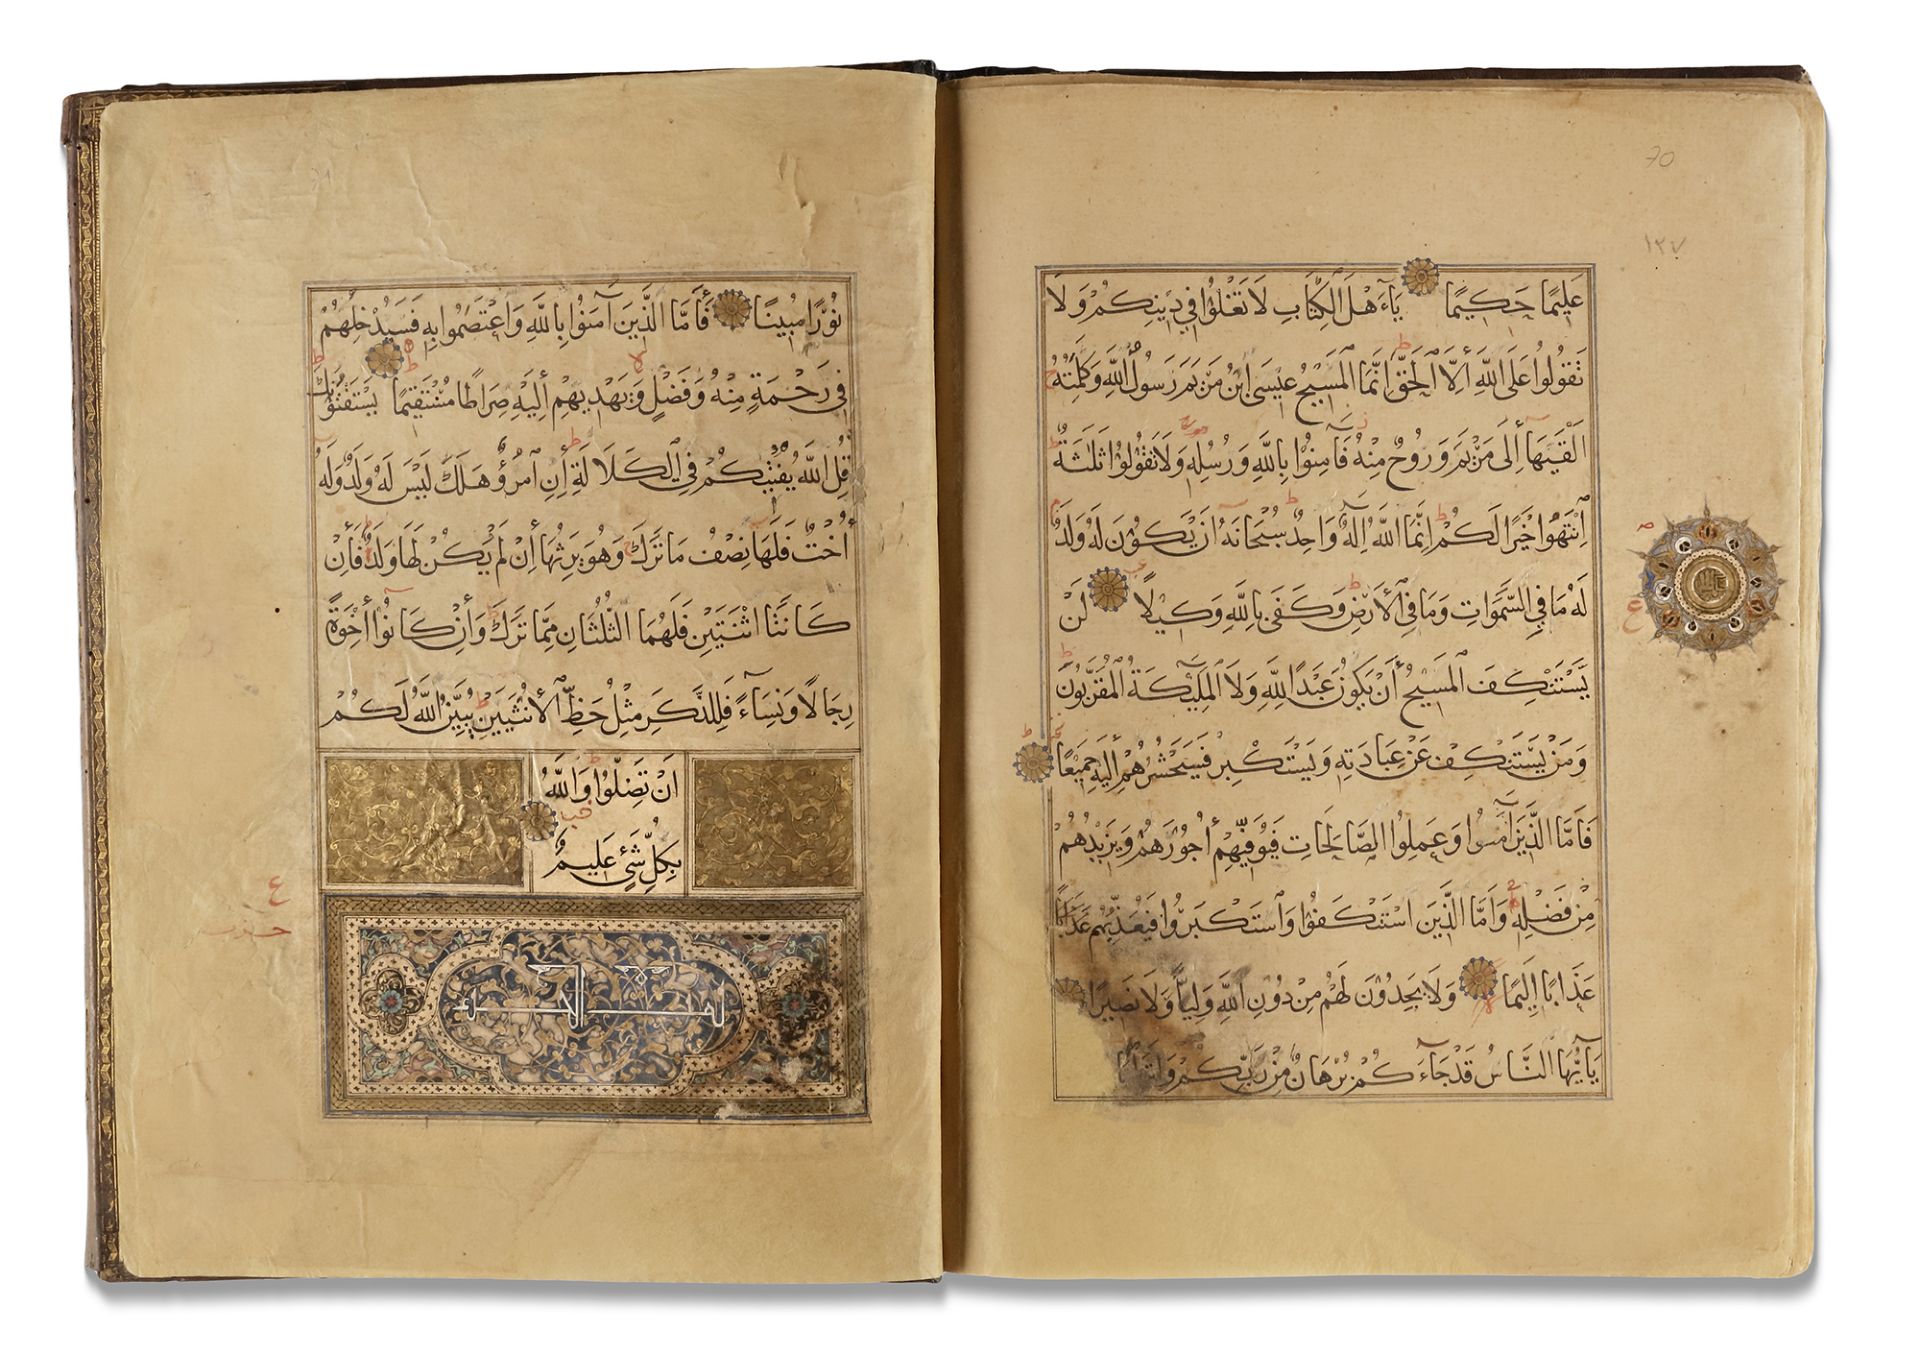 70
١٣٧
عَلِيمًا حَكِيمًا يَآءَهْلَ الْكِتَابِ لَا تَغْلُوا فِي دِينِكُمْ وَلَا
تَقُولُوا عَلَى اللَّهِ أِلَّا الْحَقَّ إِنَّمَا الْمَسِيحُ عِيسَى ابْنُ مَرْيَمَ رَسُولُ اللَّهِ وَكَلِمَتُهُ
أَلْقَيهَآ أِلَى مَرْيَمَ وَرُوحٌ مِنْهُ فَآمِنُوا بِاللَّهِ وَرُسُلِهِ وَلَا تَقُولُوا ثَلَثَةٌ
اِنْتَهُوا خَيْرًا لَكُمْ إِنَّمَا اللَّهُ إِلَهٌ وَاحِدٌ سُبْحَانَهُ أَنْ يَكُونَ لَهُ وَلَدٌ
لَهُ مَا فِي السَّمَوَاتِ وَمَا فِي الْأَرْضِ وَكَفَى بِاللَّهِ وَكِيلًا لَنْ
يَسْتَنْكِفَ الْمَسِيحُ أَنْ يَكُونَ عَبْدًا لِلَّهِ وَلَا الْمَلَئِكَةُ الْمُقَرَّبُونَ
وَمَنْ يَسْتَنْكِفْ عَنْ عِبَادَتِهِ وَيَسْتَكْبِرْ فَسَيَحْشُرُهُمْ أِلَيْهِ جَمِيعًا
فَأَمَّا الَّذِينَ آمَنُوا وَعَمِلُوا الصَّالِحَاتِ فَيُوَفِّيهِمْ أُجُورَهُمْ وَيَزِيدُهُمْ
مِنْ فَضْلِهِ وَأَمَّا الَّذِينَ اسْتَنْكَفُوا وَاسْتَكْبَرُوا فَيُعَذِّبُهُمْ عَذَابًا
عَذَابًا إِلِيمًا وَلَا يَجِدُونَ لَهُمْ مِنْ دُونِ اللَّهِ وَلِيًّا وَلَا نَصِيرًا
يَآأَيُّهَا النَّاسُ قَدْ جَآءَكُمْ بُرْهَانٌ مِنْ رَبِّكُمْ وَأَنْزَلْنَا
نُورًا مُبِينًا فَأَمَّا الَّذِينَ آمَنُوا بِاللَّهِ وَاعْتَصَمُوا بِهِ فَسَيُدْخِلُهُمْ
فِي رَحْمَةٍ مِنْهُ وَفَضْلٍ وَيَهْدِيهِمْ أِلَيْهِ صِرَاطًا مُسْتَقِيمًا يَسْتَفْتُونَكَ
قُلِ اللَّهُ يُفْتِيكُمْ فِي الْكَلَالَةِ أِنِ امْرُؤٌ هَلَكَ لَيْسَ لَهُ وَلَدٌ وَلَهُ
أُخْتٌ فَلَهَا نِصْفُ مَا تَرَكَ وَهُوَ يَرِثُهَا أِنْ لَمْ يَكُنْ لَهَا وَلَدٌ فَأِنْ
كَانَتَا اثْنَتَيْنِ فَلَهُمَا الثُّلُثَانِ مِمَّا تَرَكَ وَأِنْ كَانُوا أِخْوَةً
رِجَالًا وَنِسَآءً فَلِلذَّكَرِ مِثْلُ حَظِّ الْأُنْثَيَيْنِ يُبَيِّنُ اللَّهُ لَكُمْ
أَنْ تَضِلُّوا وَاللَّهُ
بِكُلِّ شَيْءٍ عَلِيمٌ